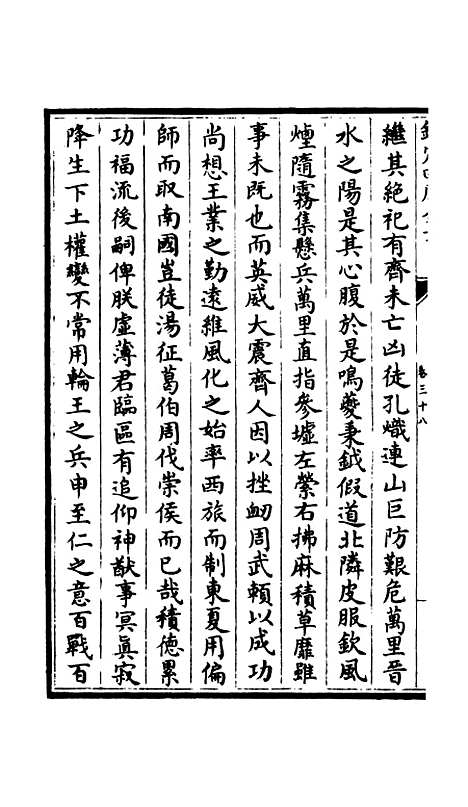 卷三十八
繼其絶祀有齊未亡凶徒孔熾連山巨防艱危萬里晉
水之陽是其心腹於是鳴夔秉鉞假道北隣皮服欽風
煙隨霧集懸兵萬里直指參墟左縈右拂麻積草靡雖
事未既也而英威大震齊人因以挫衂周武頼以成功
尚想王業之勤遠維風化之始率西旅而制東夏用偏
師而取南國豈徒湯征葛伯周伐崇侯而已哉積徳累
功福流後嗣俾朕虚薄君臨區有追仰神猷事冥真寂
降生下土權變不常用輪王之兵申至仁之意百戰百